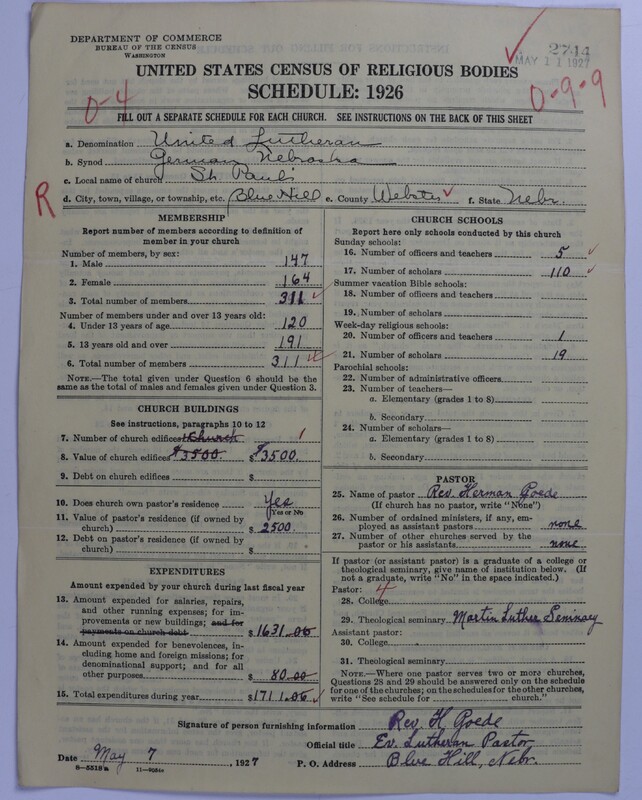 DEPARTMENT OF COMMERCE
BUREAU OF THE CENSUS
WASHINGTON
2714
MAY 11 1927
UNITED STATES CENSUS OF RELIGIOUS BODIES
SCHEDULE: 1926
0-4
0-9-9
FILL OUT A SEPARATE SCHEDULE FOR EACH CHURCH. SEE INSTRUCTIONS ON THE BACK OF THIS SHEET
a. Denomination United Lutheran
b. Synod German Nebraska
c. Local name of church St. Paul's
R
d. City, town, village, or township, etc. Blue Hill e. County Webster f. State Nebr.
MEMBERSHIP
Report number of members according to definition of
member in your church
Number of members, by sex:
1. Male 147
2. Female 164
3. Total number of members 311
Number of members under and over 13 years old:
4. Under 13 years of age 120
5. 13 years old and over 191
6. Total number of members 311
NOTE.—The total given under Question 6 should be
the same as the total of males and females given under Question 3.
CHURCH BUILDINGS
See instructions, paragraphs 10 to 12
7. Number of church edifices 1 Church 1
8. Value of church edifices $3500 $3500.
9. Debt on church edifices $
10. Does church own pastor's residence Yes
(Yes or No)
11. Value of pastor's residence (if owned by
church) $ 2500.
12. Debt on pastor's residence (if owned by
church) $
EXPENDITURES
Amount expended by your church during last fiscal year
13. Amount expended for salaries, repairs,
and other running expenses; for im-
provements or new buildings; and for
payments on church debt $1631.06
14. Amount expended for benevolences, in-
cluding home and foreign missions; for
denominational support; and for all
other purposes $ 80.00
15. Total expenditures during year $1711.06
CHURCH SCHOOLS
Report here only schools conducted by this church
Sunday schools:
16. Number of officers and teachers 5
17. Number of scholars 110
Summer vacation Bible schools:
18. Number of officers and teachers
19. Number of scholars
Week-day religious schools:
20. Number of officers and teachers 1
21. Number of scholars 19
Parochial schools:
22. Number of administrative officers
23. Number of teachers—
a. Elementary (grades 1 to 8)
b. Secondary
24. Number of scholars—
a. Elementary (grades 1 to 8)
b. Secondary
PASTOR
25. Name of pastor Rev. Herman Goede
(If church has no pastor, write "None")
26. Number of ordained ministers, if any, em-
ployed as assistant pastors none
27. Number of other churches served by the
pastor or his assistants none
If pastor (or assistant pastor) is a graduate of a college or
theological seminary, give name of institution below. (If
not a graduate, write "No" in the space indicated.)
Pastor: 4
28. College
29. Theological seminary Martin Luther Seminary
Assistant pastor:
30. College
31. Theological seminary
NOTE.—Where one pastor serves two or more churches,
Questions 28 and 29 should be answered only on the schedule
for one of the churches; on the schedules for the other churches,
write "See schedule for church."
Signature of person furnishing information Rev. H Goede
Official title Ev. Lutheran Pastor
Date May 7, 1927 P. O. Address Blue Hill, Nebr.
8-5518a